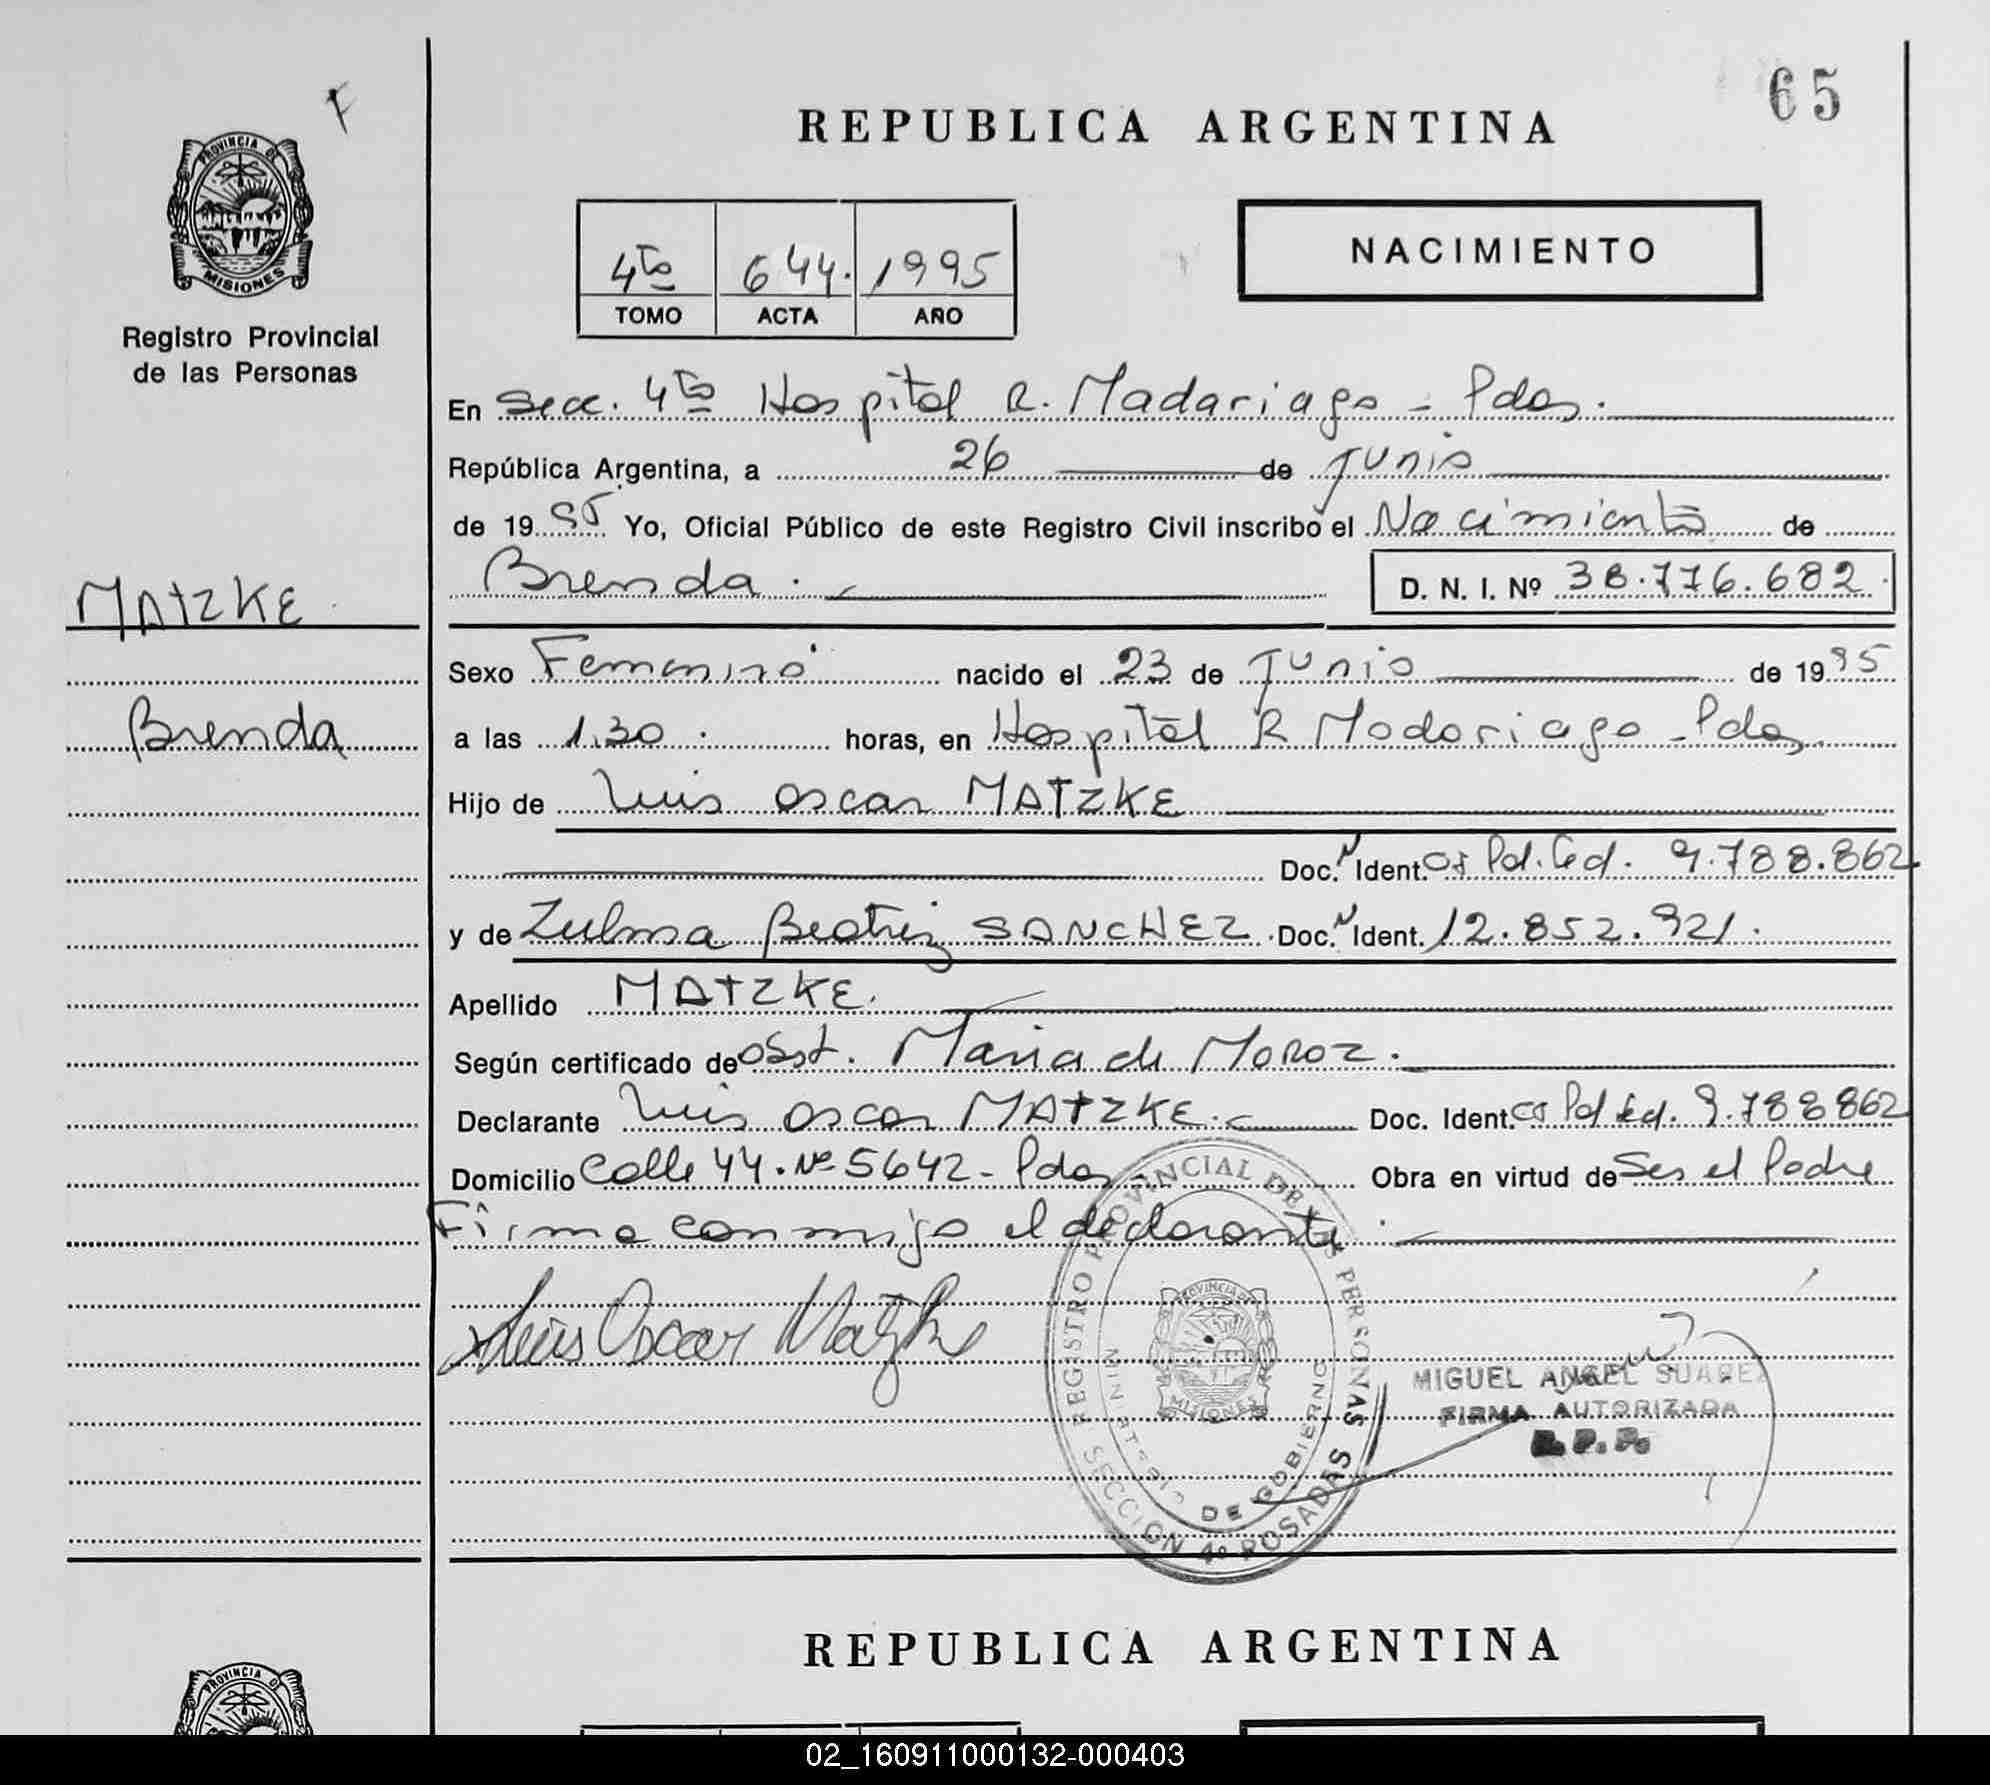 65
F
PROVINCIA DE
MISIONES
Registro Provincial
de las Personas
REPUBLICA ARGENTINA
4to 644. 1995
TOMO ACTA AÑO
NACIMIENTO
En Secc. 4ta Hospital R. Madariaga - Pdas.
República Argentina, a 26 de Junio
de 1995 Yo, Oficial Público de este Registro Civil inscribo el Nacimiento de
Brenda. D. N. I. Nº 38.776.682.
MATZKE
Brenda
Sexo Femenino nacido el 23 de Junio de 1995
a las 1.30. horas, en Hospital R Madariaga - Pdas.
Hijo de Luis Oscar MATZKE
Doc. N Ident. Pol. Fed. 9.788.862
y de Zulma Beatriz SANCHEZ Doc. N Ident. 12.852.921.
Apellido MATZKE.
Según certificado de Obst. Maria de Moroz.
Declarante Luis Oscar MATZKE. Doc. Ident. Pol Fed. 9.788862
Domicilio Calle 44. Nº 5642 - Pdas Obra en virtud de Ser el Padre
Firma conmigo el declarante.
Luis Oscar Matzke
REGISTRO PROVINCIAL DE LAS PERSONAS
MINISTERIO DE GOBIERNO
PROVINCIA DE
MISIONES
SECCION 4º POSADAS
MIGUEL ANGEL SUAREZ
FIRMA AUTORIZADA
R.P.P.
REPUBLICA ARGENTINA
PROVINCIA DE
02_160911000132-000403